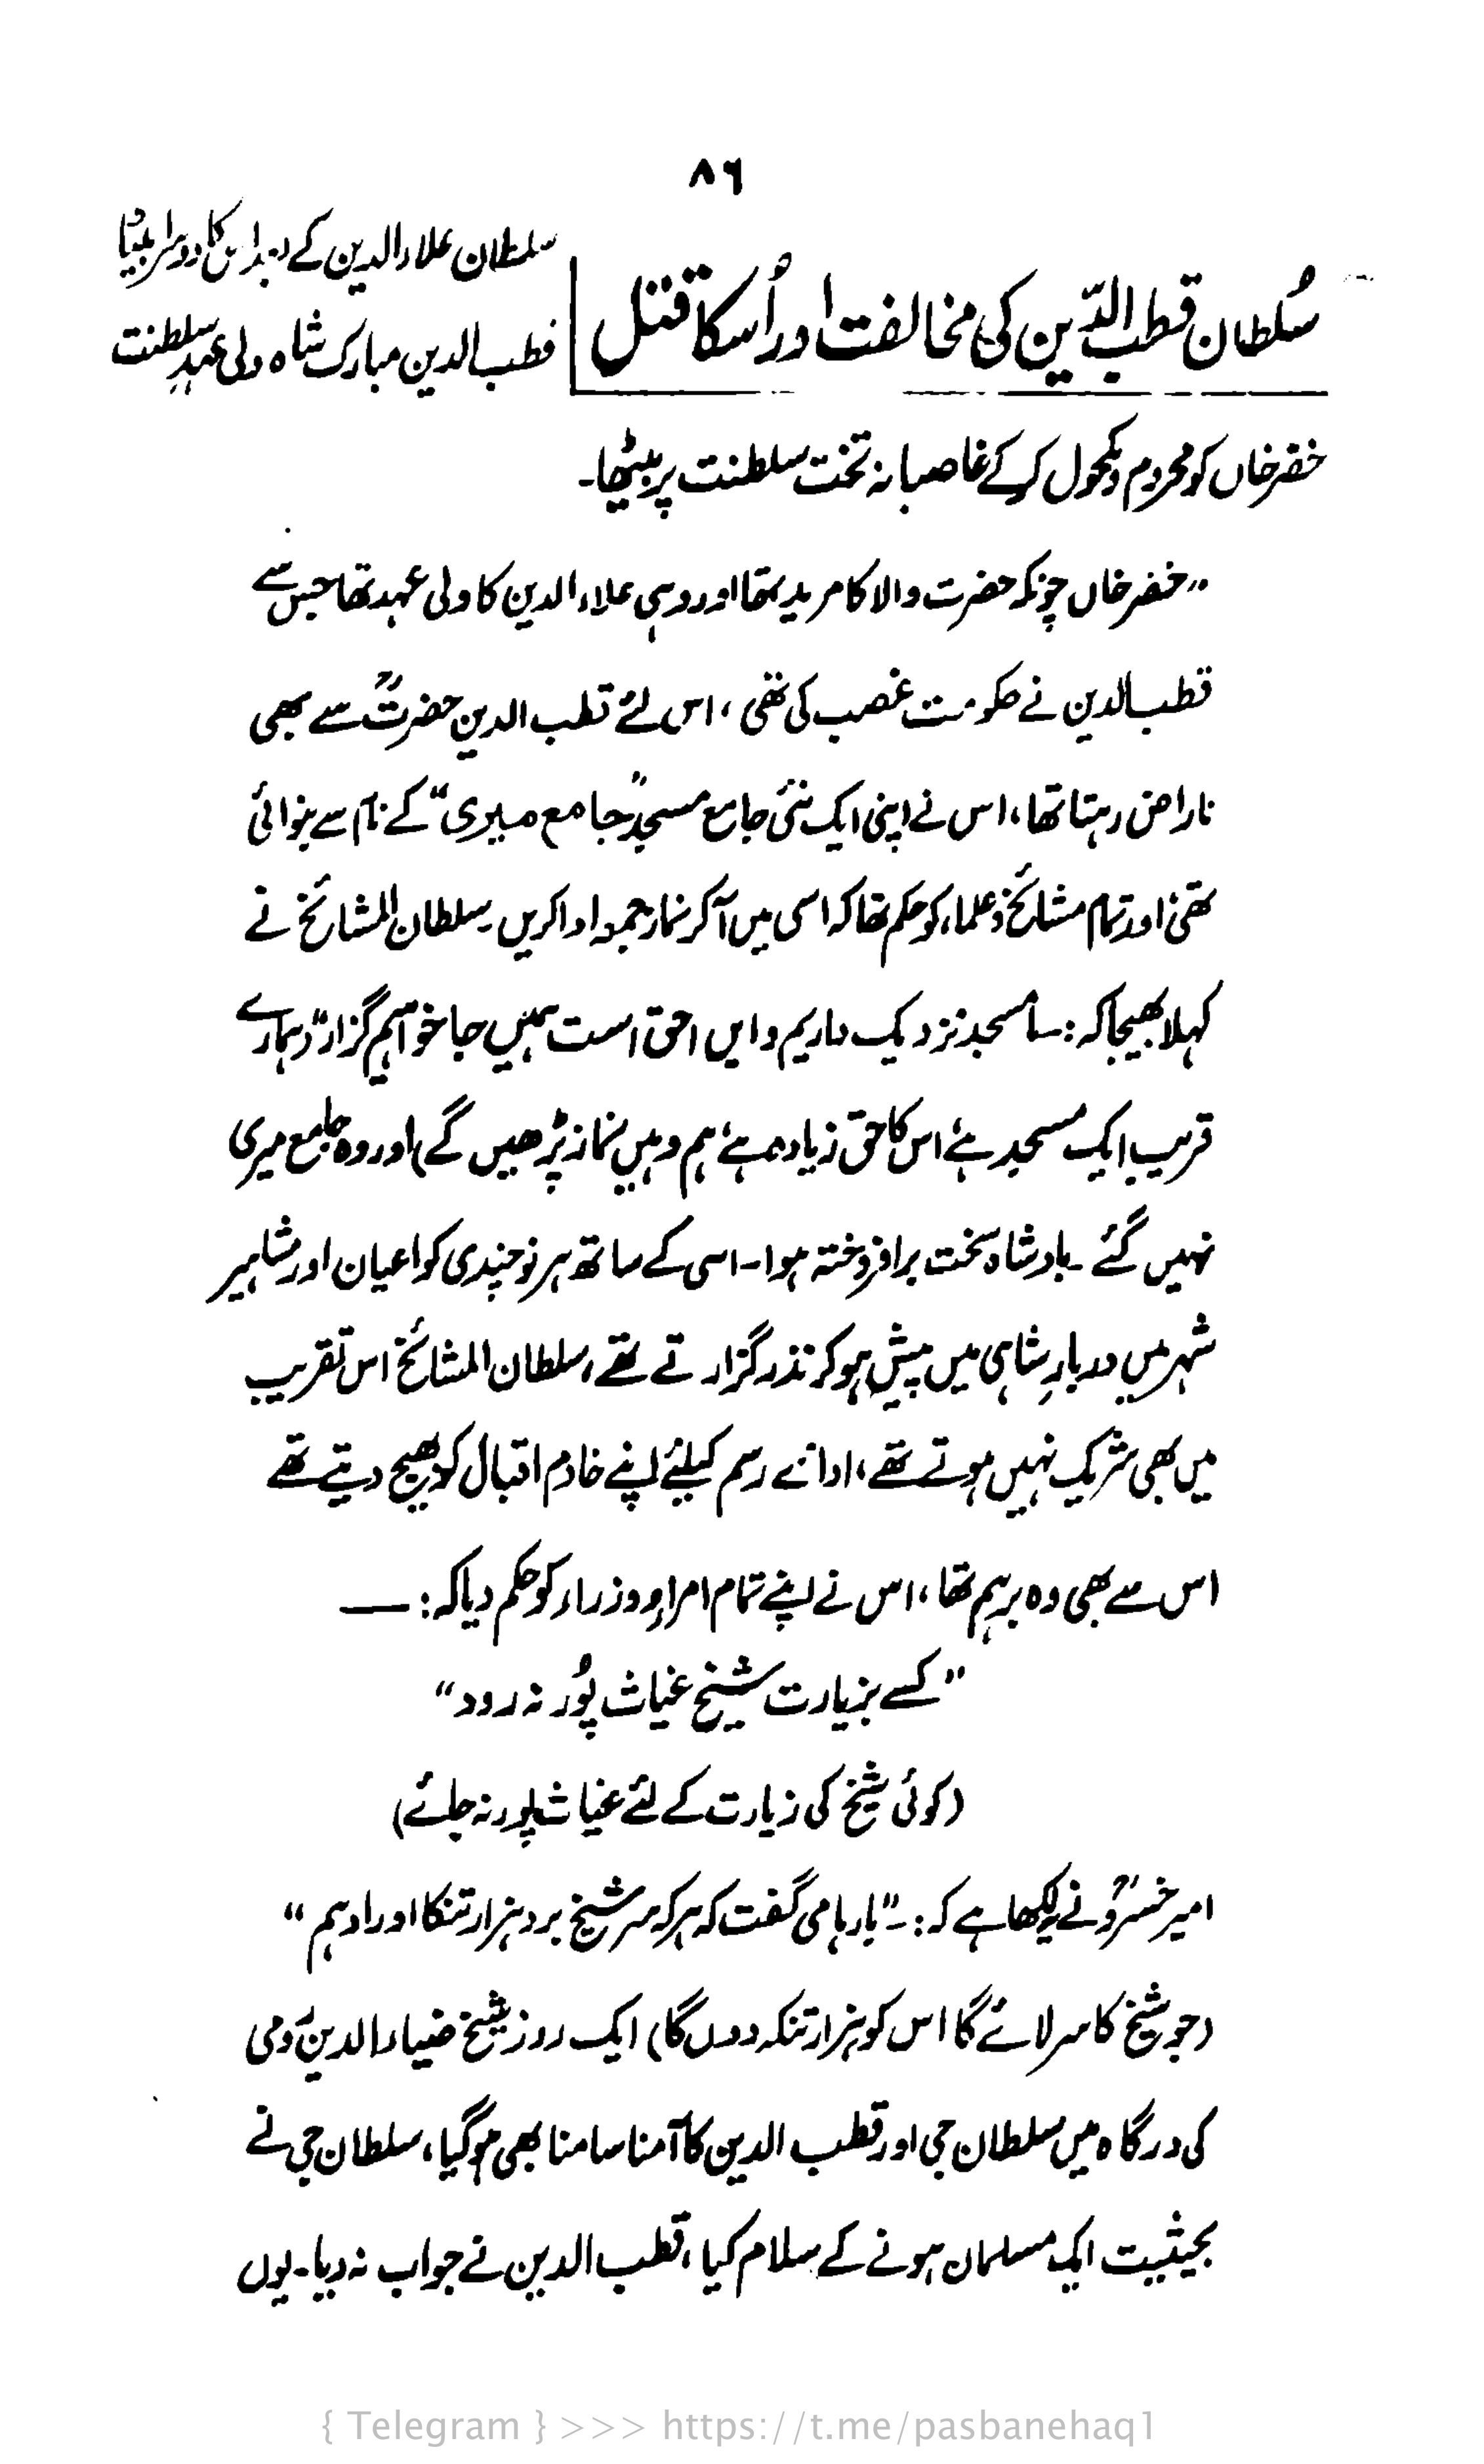 ۸۶
سلطان علاء الدین کے بعد اس کا دوسرا بیٹا
سُلطان قطب الدّین کی مخالفت اور اُسکا قتل
قطب الدین مبارک شاہ ولی عہدِ سلطنت
خضر خاں کو محروم و مکحول کر کے غاصبانہ تخت سلطنت پر بیٹھا۔
”خضر خاں چونکہ حضرت والا کا مرید تھا اور وہی علاء الدین کا ولی عہد تھا جس سے
قطب الدین نے حکومت غصب کی تھی، اس لئے قطب الدین حضرتؒ سے بھی
ناراض رہتا تھا، اس نے اپنی ایک نئی جامع مسجد ”جامع میری“ کے نام سے بنوائی
تھی اور تمام مشائخ و علماء کو حکم تھا کہ اسی میں آکر نماز جمعہ ادا کریں۔ سلطان المشائخ نے
کہلا بھیجا کہ: ”ما مسجد نزدیک داریم و ایں احق است ہمیں جا خواہیم گزارد“ (ہمارے
قریب ایک مسجد ہے، اس کا حق زیادہ ہے، ہم وہیں نماز پڑھیں گے) اور وہ جامع میری
نہیں گئے۔ بادشاہ سخت برافروختہ ہوا۔ اسی کے ساتھ ہر نوچندی کو اعیان اور مشاہیر
شہر میں دربارِ شاہی میں پیش ہو کر نذر گزارتے تھے، سلطان المشائخ اس تقریب
میں بھی شریک نہیں ہوتے تھے، ادائے رسم کیلئے اپنے خادم اقبال کو بھیج دیتے تھے
اس سے بھی وہ برہم تھا، اس نے اپنے تمام امراء و وزراء کو حکم دیا کہ: ــــ
”کسے بزیارت شیخ غیاث پُور نہ رود“
(کوئی شیخ کی زیارت کے لئے غیاث پور نہ جائے)
امیر خسروؒ نے لکھا ہے کہ:۔ ”بارہا می گفت کہ ہر کہ سر شیخ برد ہزار تنکا او را دہم“
(جو شیخ کا سر لائے گا اس کو ہزار تنکہ دوں گا) ایک روز شیخ ضیاء الدین رومی
کی درگاہ میں سلطان جی اور قطب الدین کا آمنا سامنا بھی ہو گیا، سلطان جی نے
بحیثیت ایک مسلمان ہونے کے سلام کیا، قطب الدین نے جواب نہ دیا۔ یوں
{ Telegram } >>> https://t.me/pasbanehaq1